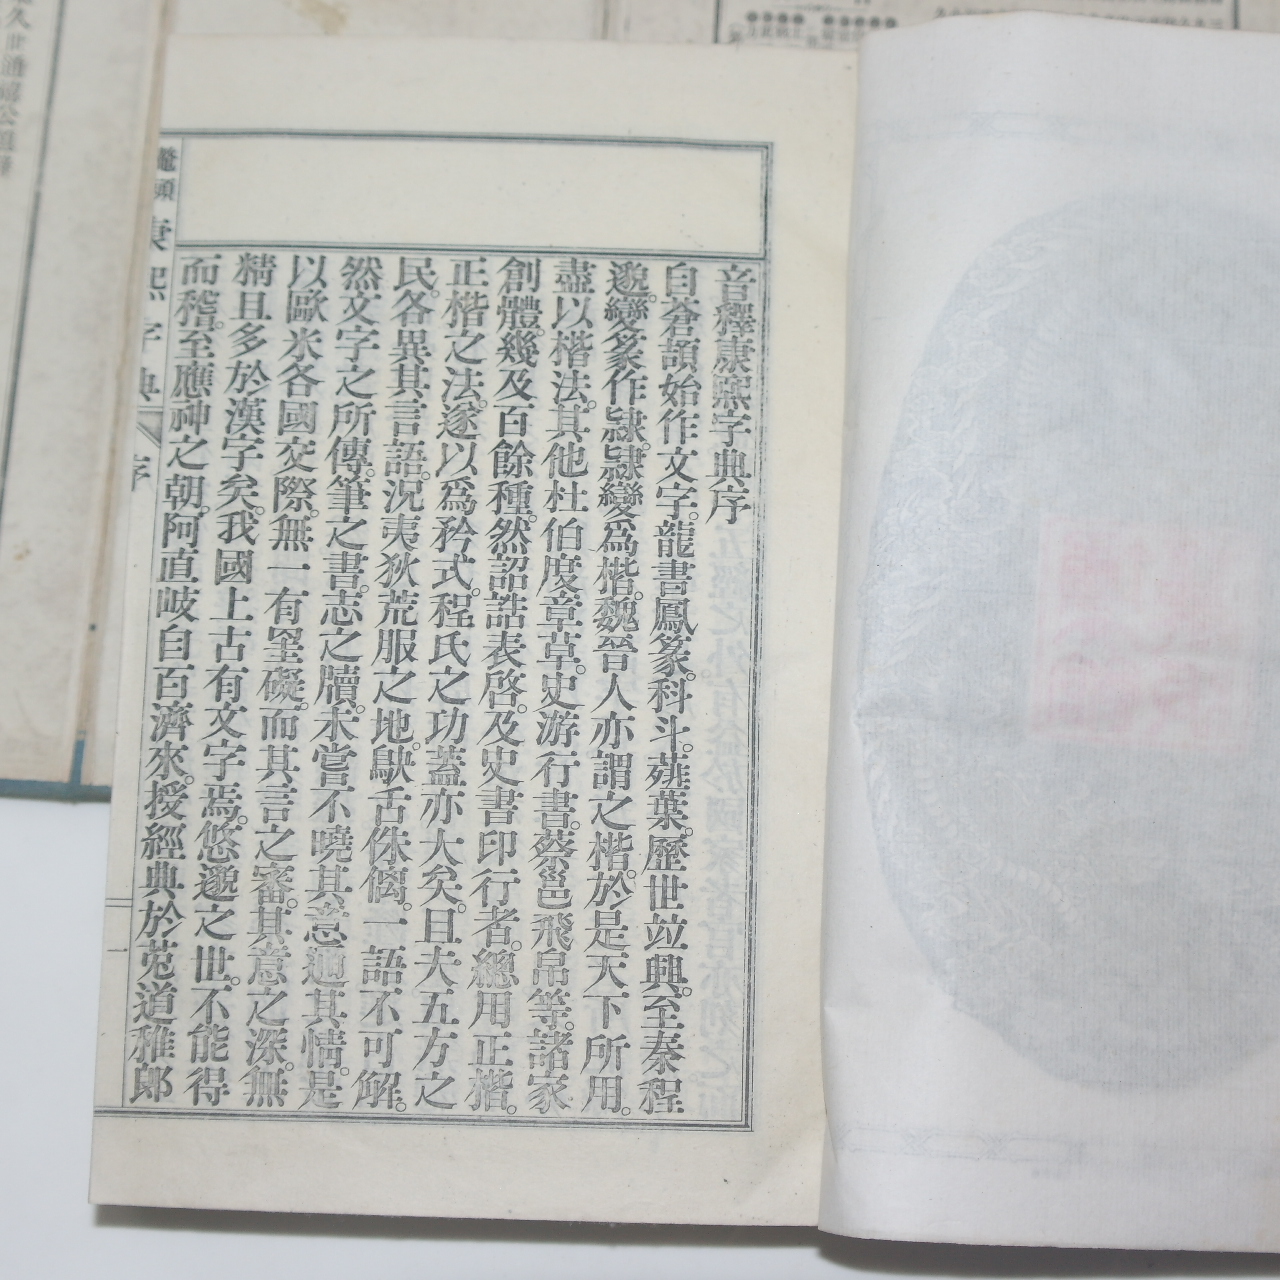 音釋康熙字典序
自蒼頡始作文字。龍書鳳篆。科斗。薤葉。歷世竝興。至秦程
邈。變篆作隷。隷變爲楷。魏晉人亦謂之楷。於是天下所用。
盡以楷法。其他杜伯度章草。史游行書。蔡邕飛帛等。諸家
創體。幾及百餘種。然詔誥表啓。及史書印行者。總用正楷。
正楷之法。遂以爲矜式。程氏之功蓋亦大矣。且夫五方之
民。各異其言語。況夷狄荒服之地。鴃舌侏㒧。一語不可解。
然文字之所傳。筆之書。志之牘。未嘗不曉其意通其情。是
以歐米各國交際。無一有罣礙。而其言之審。其意之深。無
精且多於漢字矣。我國上古有文字焉。悠邈之世。不能得
而稽。至應神之朝。阿直岐自百濟來。授經典於菟道稚郎
鼇頭 康熙字典 序 一
久世通禧公題